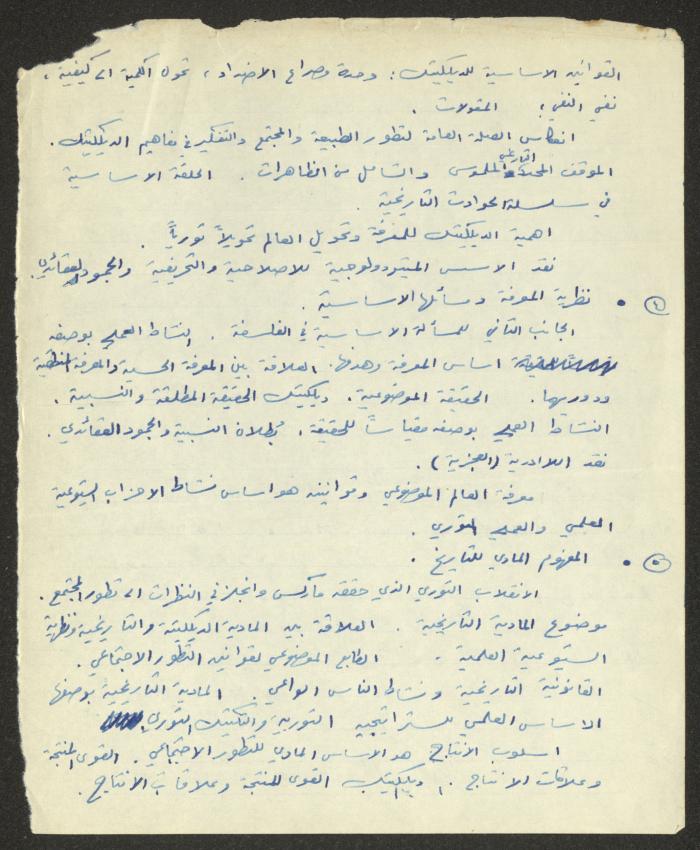 القوانين الاساسية للديلكتيك: وحدة وصراع الاضداد، تحول الكمية الى كيفية،
نفي النفي، المقولات.
انعكاس الصلة العامة لتطور الطبيعة والمجتمع والتفكير في مفاهيم الديلكتيك.
الموقف التاريخي الملموس والشامل من الظاهرات. الحلقة الاساسية
في سلسلة الحوادث التاريخية
اهمية الديلكتيك للمعرفة وتحويل العالم تحويلاً ثورياً.
نقد الاسس الميتودولوجية للاصلاحية والتحريفية والجمود العقائدي.
٤ • نظرية المعرفة ومسائلها الاساسية.
الجانب الثاني للمسألة الاساسية في الفلسفة. النشاط العملي بوصفه
اساس المعرفة وهدفها. العلاقة بين المعرفة الحسية والمعرفة المنطقية
ودوريهما. الحقيقة الموضوعية. ديلكتيك الحقيقة المطلقة والنسبية.
النشاط العملي بوصفه مقياساً للحقيقة. بطلان النسبية والجمود العقائدي.
نقد اللاادرية (العجزية).
معرفة العالم الموضوعي وقوانينه هو اساس نشاط الاحزاب الشيوعية
العلمي والعملي الثوري.
٥ • المفهوم المادي للتاريخ.
الانقلاب الثوري الذي حققه ماركس وانجلز في النظرات الى تطور المجتمع.
موضوع المادية التاريخية. العلاقة بين المادية الديلكتية والتاريخية ونظرية
الشيوعية العلمية. الطابع الموضوعي لقوانين التطور الاجتماعي.
القانونية التاريخية ونشاط الناس الواعي. المادية التاريخية بوصفها
الاساس العلمي للستراتيجية الثورية والتكتيك الثوري
اسلوب الانتاج هو الاساس المادي للتطور الاجتماعي. القوى المنتجة
وعلاقات الانتاج. ديلكتيك القوى المنتجة وعلاقات الانتاج.